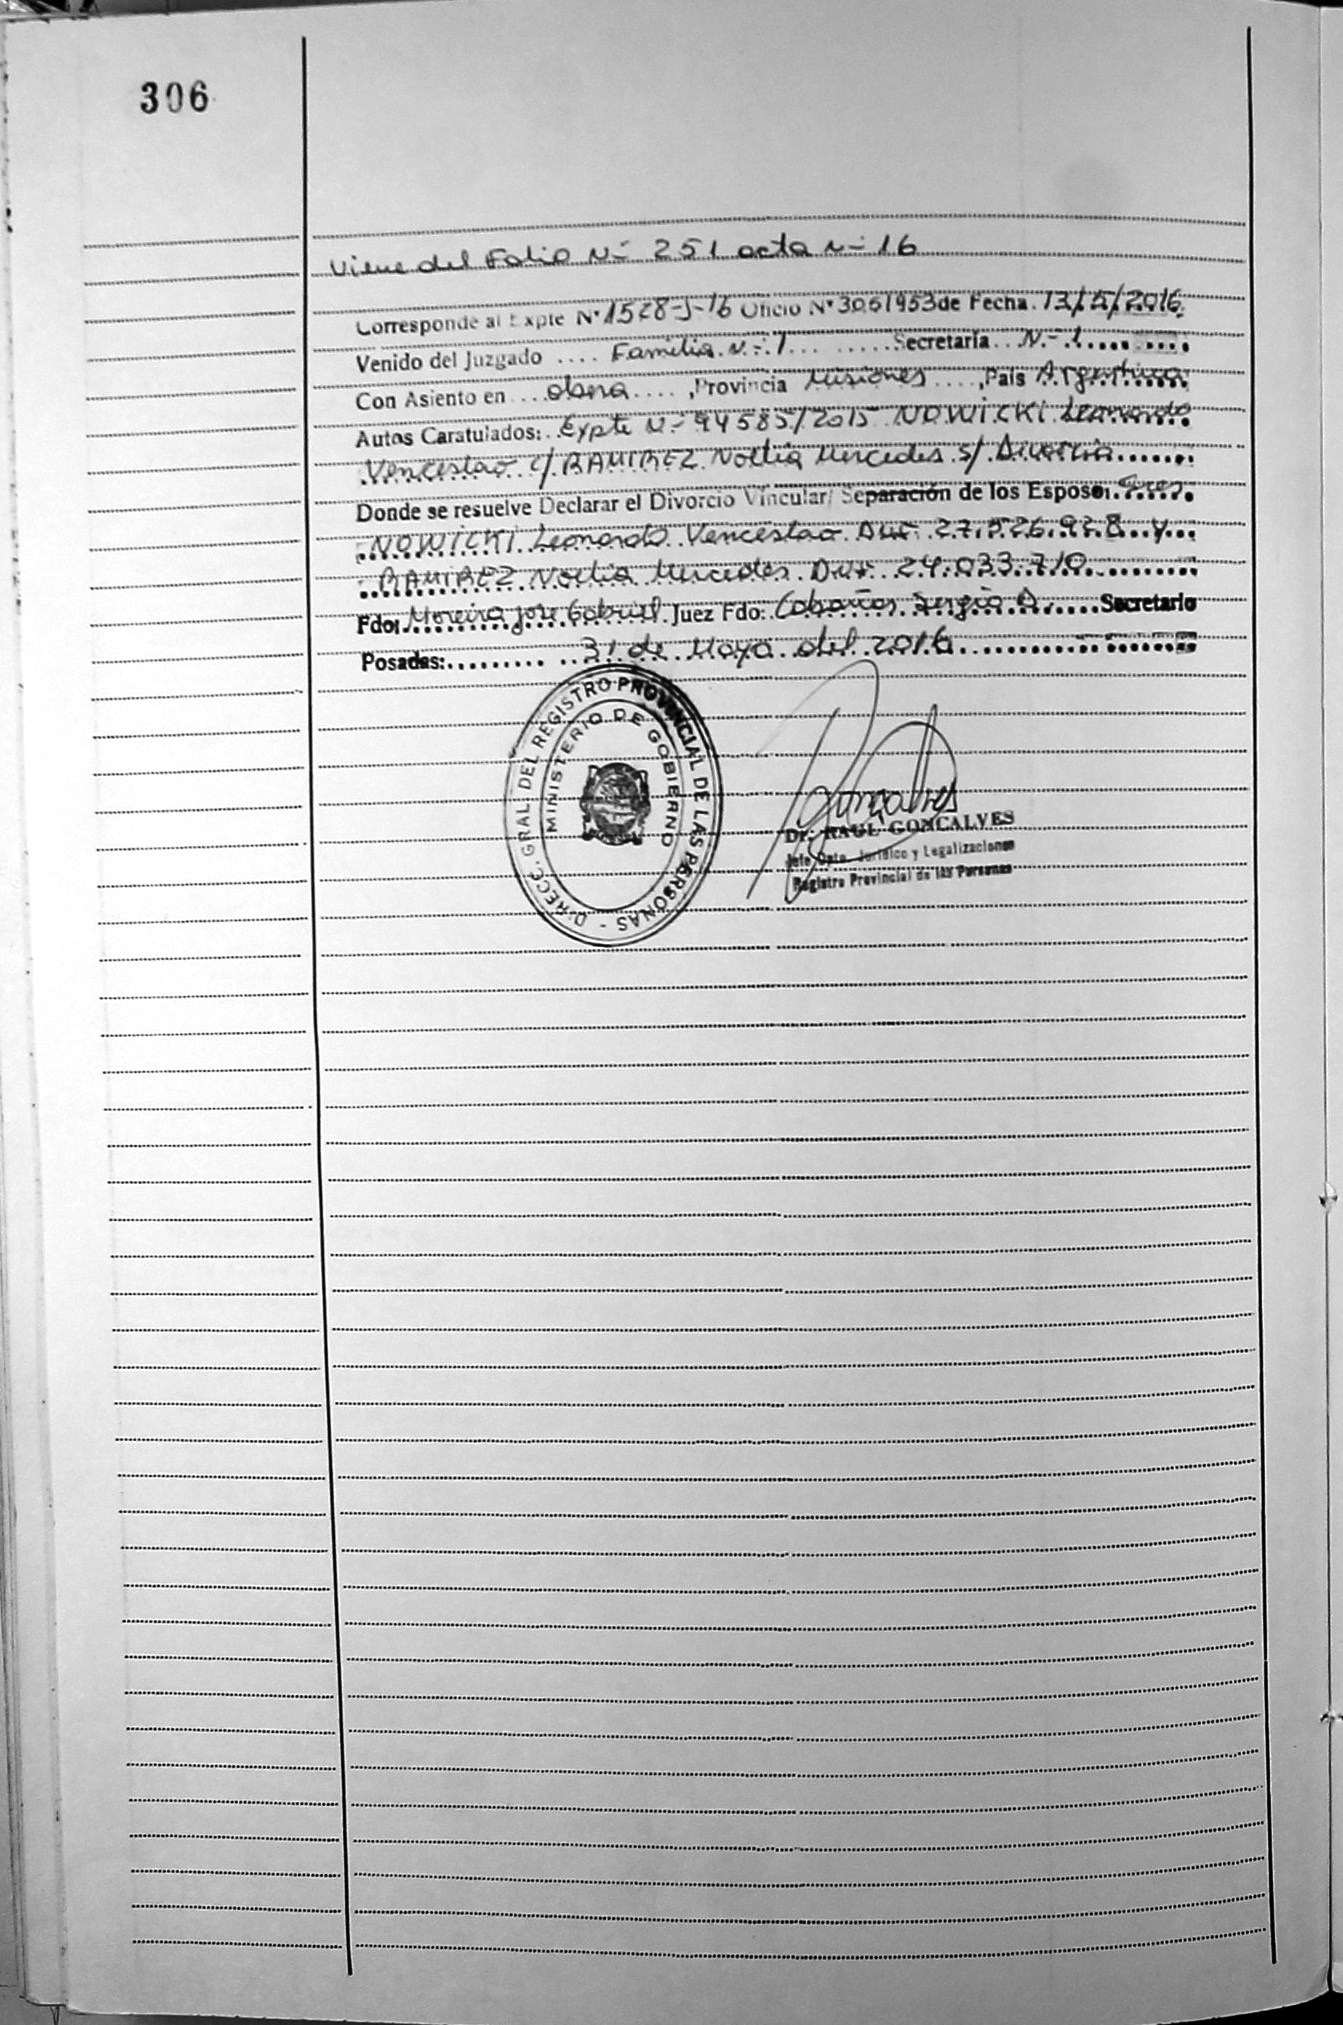 306
Viene del Folio N- 251 acta N- 16
Corresponde al Expte N° 1528-J-16 Oficio N° 3061953 de Fecha. 13/5/2016.
Venido del Juzgado .... Familia. N.-.1... ......Secretaría...N.- 1.....
Con Asiento en ...obera.... ,Provincia Misiones ....,País Argentina
Autos Caratulados:. Expte N- 94585/2015 NOWICKI Leonardo
Venceslao c/ RAMIREZ Noelia Mercedes. s/. Divorcio.......
Donde se resuelve Declarar el Divorcio Vincular/ Separación de los Esposo:
NOWICKI Leonardo Venceslao DNI. 27.526.928 y...
RAMIREZ Noelia Mercedes. DNI. 24.033.710
Fdo: Moreira José Gabriel Juez Fdo: Cabañas Sergio A. .... Secretario
Posadas:......... ...31 de Mayo del 2016
DIRECC. GRAL. DEL REGISTRO PROVINCIAL DE LAS PERSONAS -
MINISTERIO DE GOBIERNO
Dr. RAUL GONCALVES
Jefe Dpto. Jurídico y Legalizaciones
Registro Provincial de las Personas